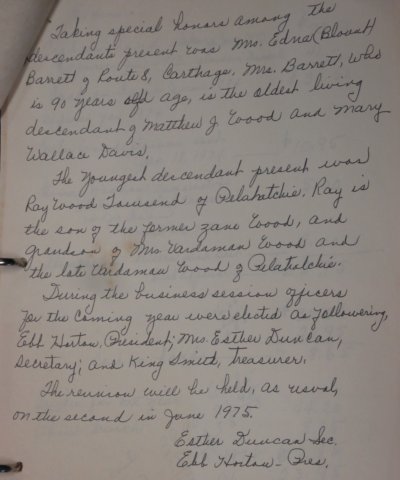 Taking special honors among the
descendants present was Mrs. Edna (Blount)
Barrett of Route 8, Carthage. Mrs. Barrett, who
is 90 years old age, is the oldest living
descendant of Matthew J Wood and Mary
Wallace Davis.
The Youngest descendant present was
Ray Wood Townsend of Pelahatchie. Ray is
the son of the former Zane Wood, and
grandson of Mrs. Vardaman Wood and
the late Vardaman Wood of Pelahatchie.
During the business session officers
for the coming year were elected as followering,
Ebb Horton, President; Mrs. Esther Duncan,
Secretary; and King Smith, treasurer.
The reunion will be held, as usual,
on the second in June 1975.
Esther Duncan Sec.
Ebb Horton - Pres.